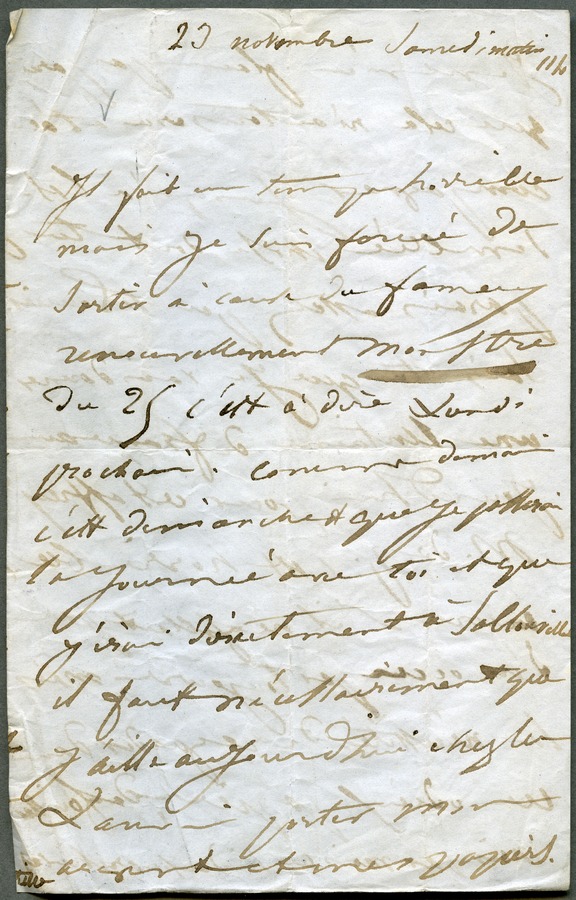 23 novembre Samedi matin
Il fait un temps horrible
mais je suis forcé de
sortir à cause du fameux
renouvellement monstre
du 25 c'est à dire Lundi
prochain. comme demain
c'est dimanche et que je passerai
la journée avec toi et que
j'irai directement à
il faut nécessairement que
j'aille aujourd'hui chez
porter mon
et mes papiers.